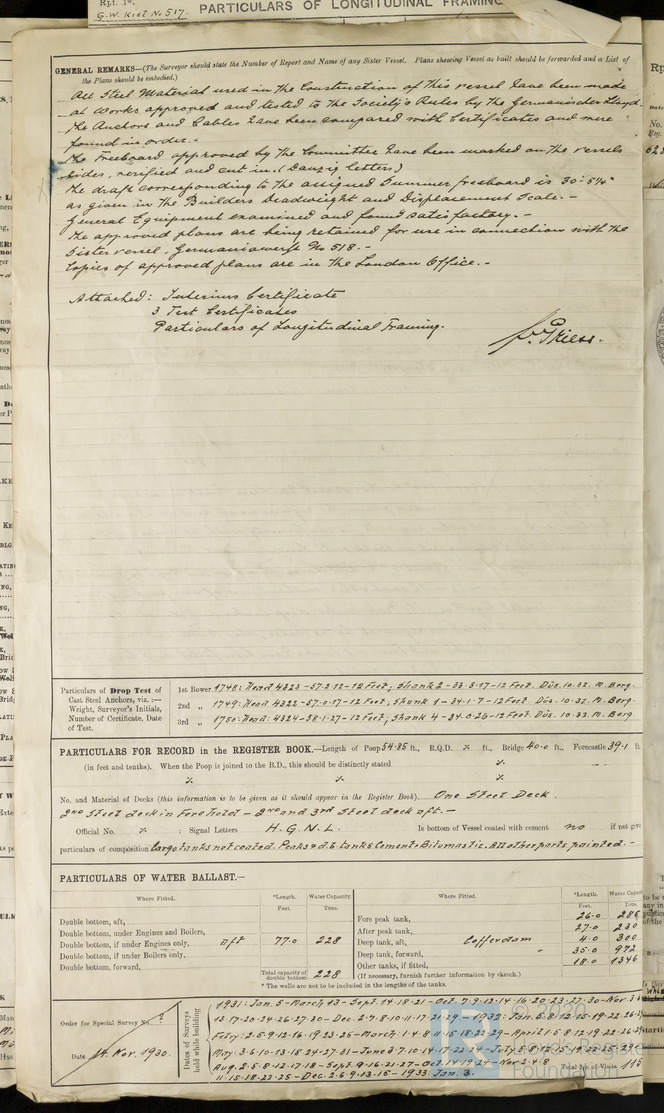 Rpt. 1*.
G.W. Kiel No 517.
PARTICULARS OF LONGITUDINAL FRAMING
GENERAL REMARKS—(The Surveyor should state the Number of Report and Name of any Sister Vessel. Plans showing Vessel as built should be forwarded and a List of
the Plans should be embodied.)
All Steel Material used in the Construction of this vessel have been made
at Works approved and tested to the Society's Rules by the Germanischer Lloyd.
The Anchors and Cables have been compared with Certificates and were
found in order. -
The Freeboard approved by the Committee have been marked on the vessels
sides, verified and cut in. (Danzig letters)
The draft corresponding to the assigned Summer freeboard is 30'-5¼"
as given in the Builders Deadweight and Displacement Scale. -
General Equipment examined and found satisfactory. -
The approved plans are being retained for use in connection with the
Sister vessel, Germaniawerft No 518. -
Copies of approved plans are in the London Office. -
Attached: Interims Certificate
3 Test Certificates
Particulars of Longitudinal Framing.
Particulars of Drop Test of
Cast Steel Anchors, viz. :—
Weight, Surveyor's Initials,
Number of Certificate, Date
of Test.
1st Bower 1748: Head 4323-57-2-12-12 Feet; Shank 2-33-3-17-12 Feet. Düs. 10.32. M. Berg.
2nd „ 1749: Head 4322-57-0-17-12 Feet; Shank 1-34-1-7-12 Feet. Düs. 10.32. M. Berg.
3rd „ 1750: Head: 4324-58-1-27-12 Feet; Shank 4-34-0-26-12 Feet. Düs. 10.32. M. Berg
PARTICULARS FOR RECORD in the REGISTER BOOK.—Length of Poop 54.85 ft., R.Q.D. ft., Bridge 40.0 ft., Forecastle 39.1 ft.
(in feet and tenths). When the Poop is joined to the B.D., this should be distinctly stated
No. and Material of Decks (this information is to be given as it should appear in the Register Book) One Steel Deck.
2nd Steel deck in Fore hold - 2nd and 3rd Steel deck aft. -
Official No. : Signal Letters H.G.N.L. Is bottom of Vessel coated with cement no if not give
particulars of composition Cargo tanks not coated. Peaks & d.b. tanks Cement & Bitumastic. All other parts painted. -
PARTICULARS OF WATER BALLAST.—
Where Fitted. *Length. Water Capacity. Where Fitted. *Length. Water Capacity
Feet. Tons. Feet. Tons.
Double bottom, aft, Fore peak tank, 26.0 286
Double bottom, under Engines and Boilers, After peak tank, 27.0 230
Double bottom, if under Engines only, Aft 77.0 228 Deep tank, aft, Cofferdam 4.0 300
Double bottom, if under Boilers only, Deep tank, forward, 35.0 972
Double bottom, forward, Other tanks, if fitted, 18.0 1346
Total capacity of double bottom 228 (If necessary, furnish further information by sketch.)
* The wells are not to be included in the lengths of the tanks.
Order for Special Survey No.
Date 14. Nov. 1930.
Dates of Surveys held while building
1931: Jan. 5 - March 13 - Sept. 14-18-21 - Oct. 7-9-12-14-16-20-23-27-30 - Nov. 3-6
13-17-20-24-26-27-30 - Dec. 2-7-8-10-11-17-21-29 - 1932: Jan. 5-8-12-15-19-22-26
Febr.: 2-5-9-12-16-19-23-25 - March: 1-4-8-11-15-18-22-29 - April: 1-5-8-12-19-22-26
May: 3-6-10-13-18-24-27-31 - June 3-7-10-14-17-22
Aug. 2-5-8-12-17-18 - Sept. 9-16-21-27 - Oct. 14-19-24 - Nov. 2-4-8
11-15-18-22-25 - Dec. 2-6-9-13-15 - 1933: Jan. 3.
Total No. of Visits 115
© 2020
Lloyd's Register
Foundation